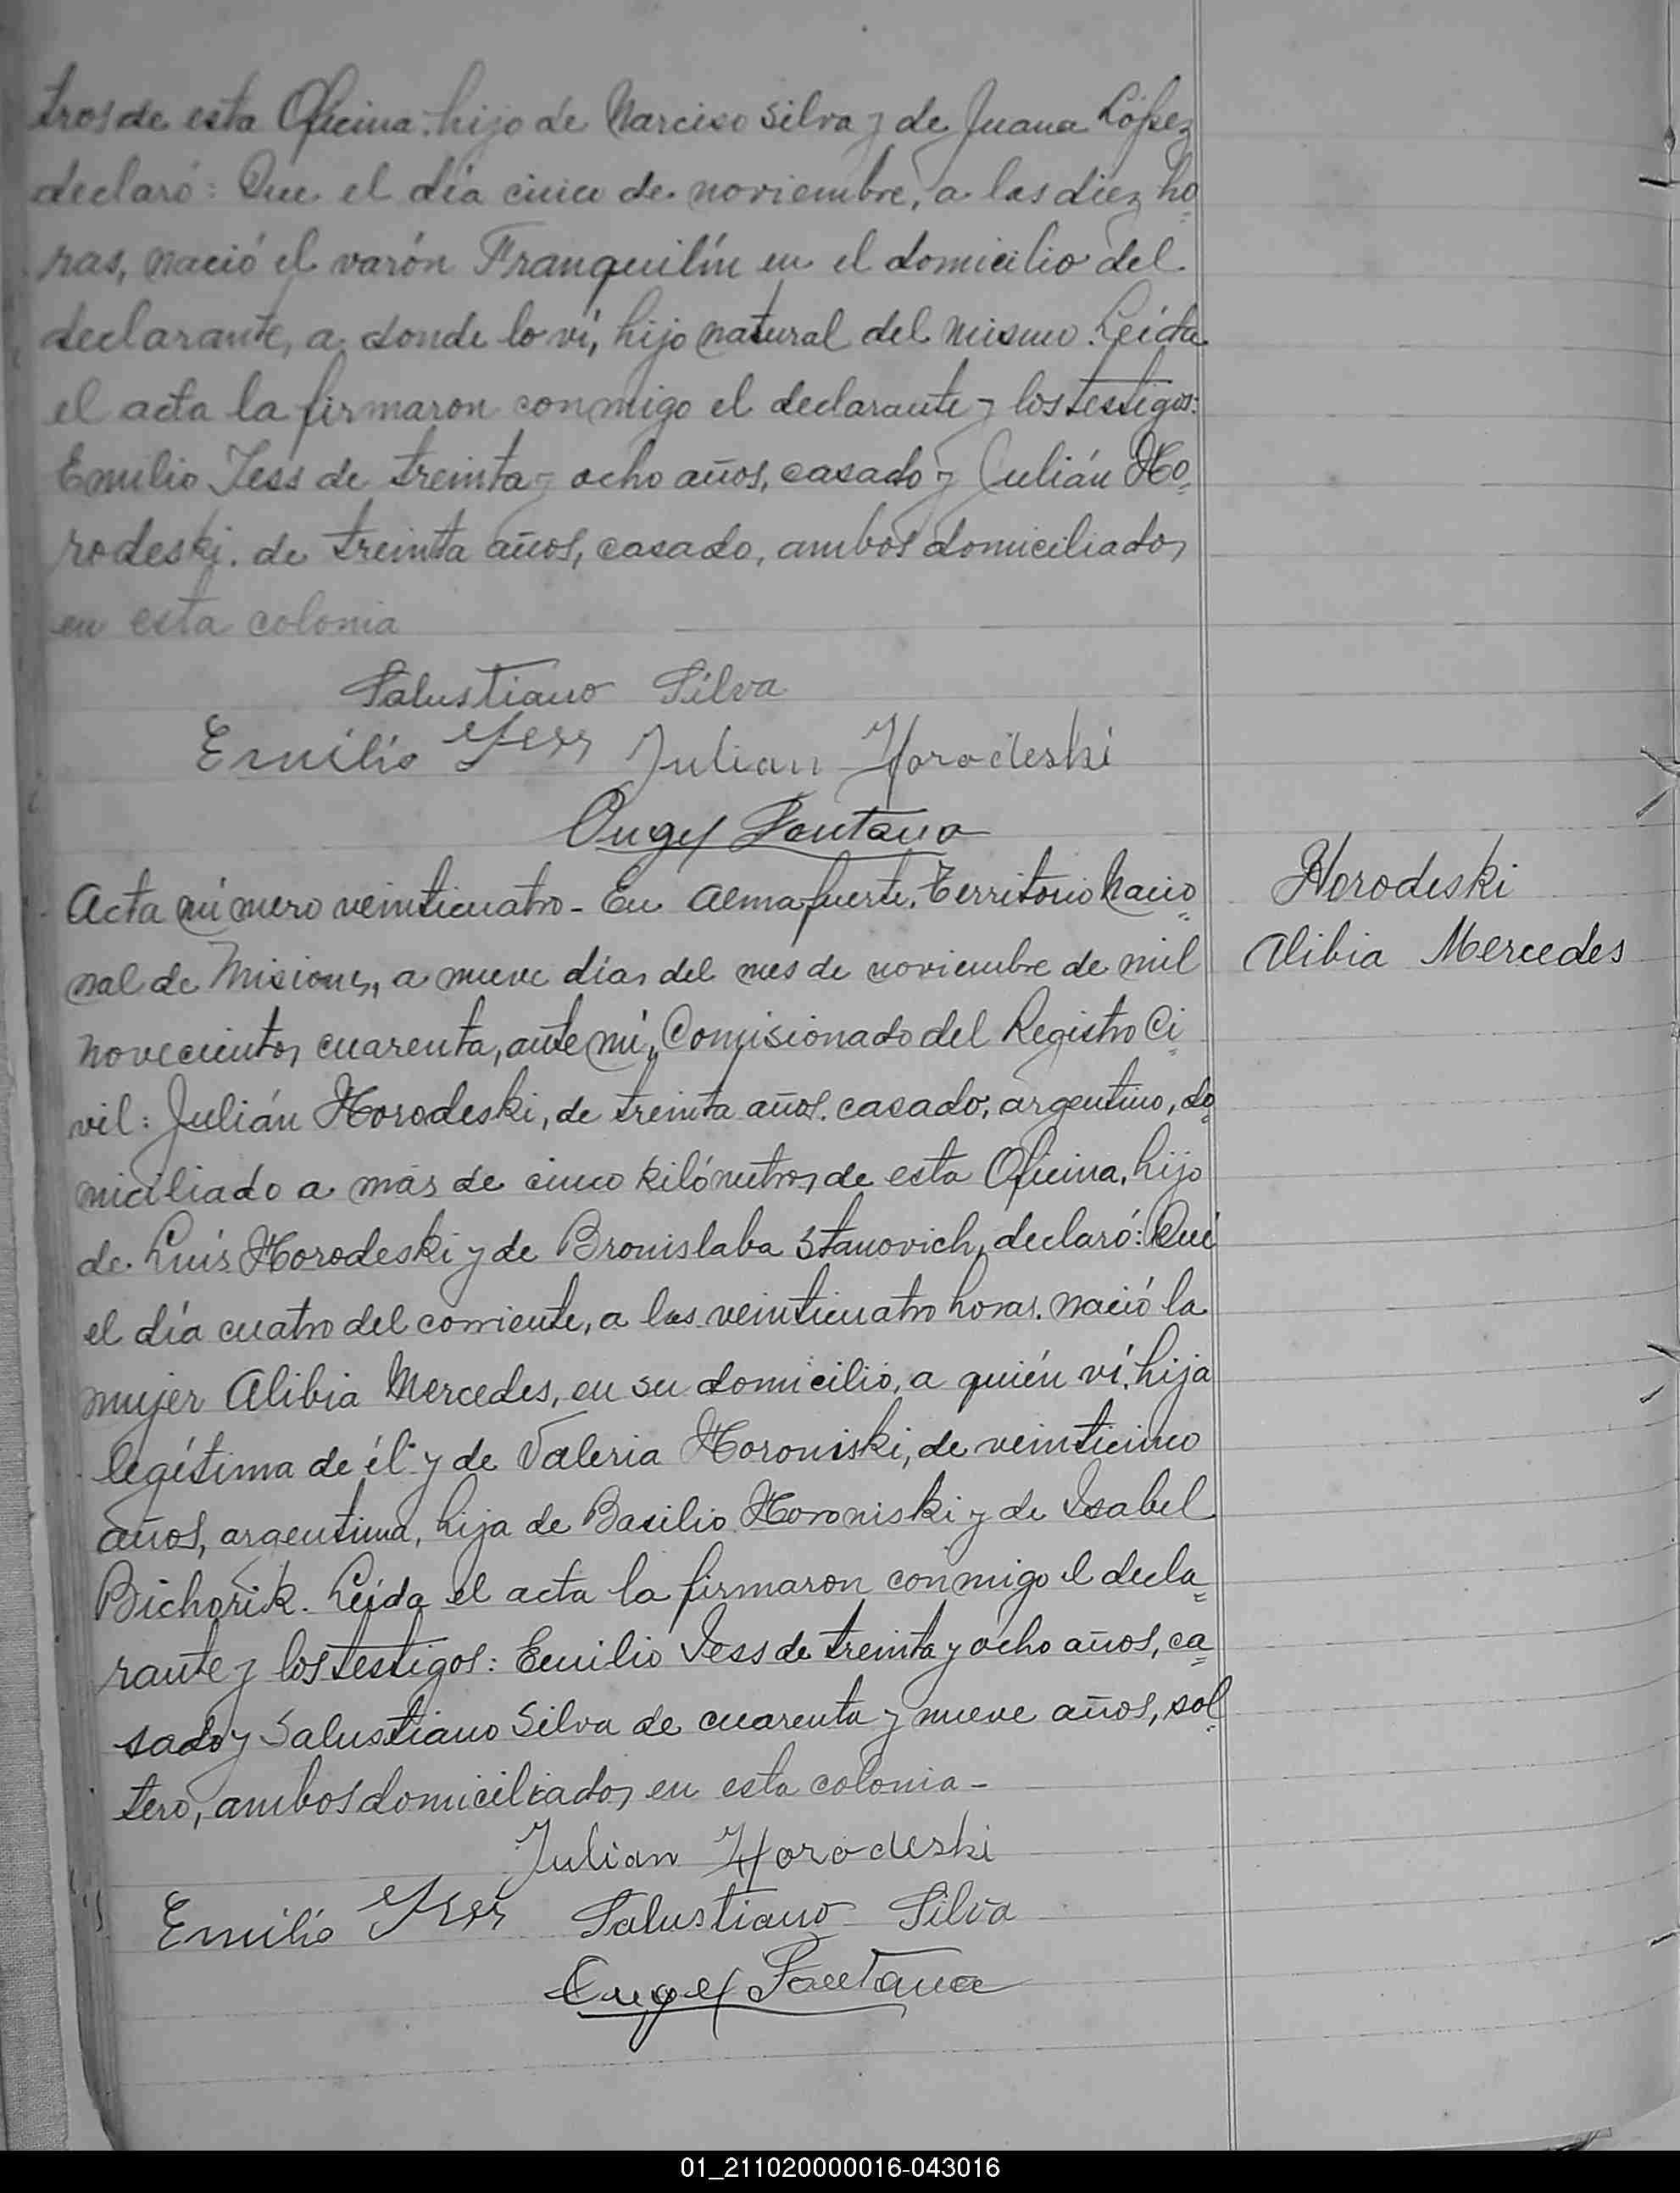 tros de esta Oficina. hijo de Narciso Silva y de Juana López
declaró: Que el día cinco de noviembre, a las diez ho
ras, nació el varón Franquilín en el domicilio del
declarante, a donde lo ví, hijo natural del mismo. Leída
el acta la firmaron conmigo el declarante y los testigos:
Emilio Jess de treinta y ocho años, casado y Julián Ho
rodeski. de treinta años, casado, ambos domiciliados
en esta colonia
Salustiano Silva
Emilio Jess Julian Horodeski
Angel Santana
Acta número veinticuatro - En Almafuerte. Territorio Nacio
nal de Misiones, a nueve días del mes de noviembre de mil
novecientos cuarenta, ante mí, Comisionado del Registro Ci
vil: Julián Horodeski, de treinta años. casado, argentino, do
miciliado a más de cinco kilómetros de esta Oficina, hijo
de Luís Horodeski y de Bronislaba Stanovich, declaró: Que
el día cuatro del corriente, a las veinticuatro horas. nació la
mujer Alibia Mercedes, en su domicilio, a quién ví, hija
legítima de él y de Valeria Horoniski, de veinticinco
años, argentina, hija de Basilio Horoniski y de Isabel
Bichorik. Leída el acta la firmaron conmigo el decla
rante y los testigos: Emilio Jess de treinta y ocho años, ca
sado y Salustiano Silva de cuarenta y nueve años, sol
tero, ambos domiciliados en esta colonia -
Julian Horodeski
Emilio Jess Salustiano Silva
Angel Santana
Horodeski
Alibia Mercedes
01_211020000016-043016